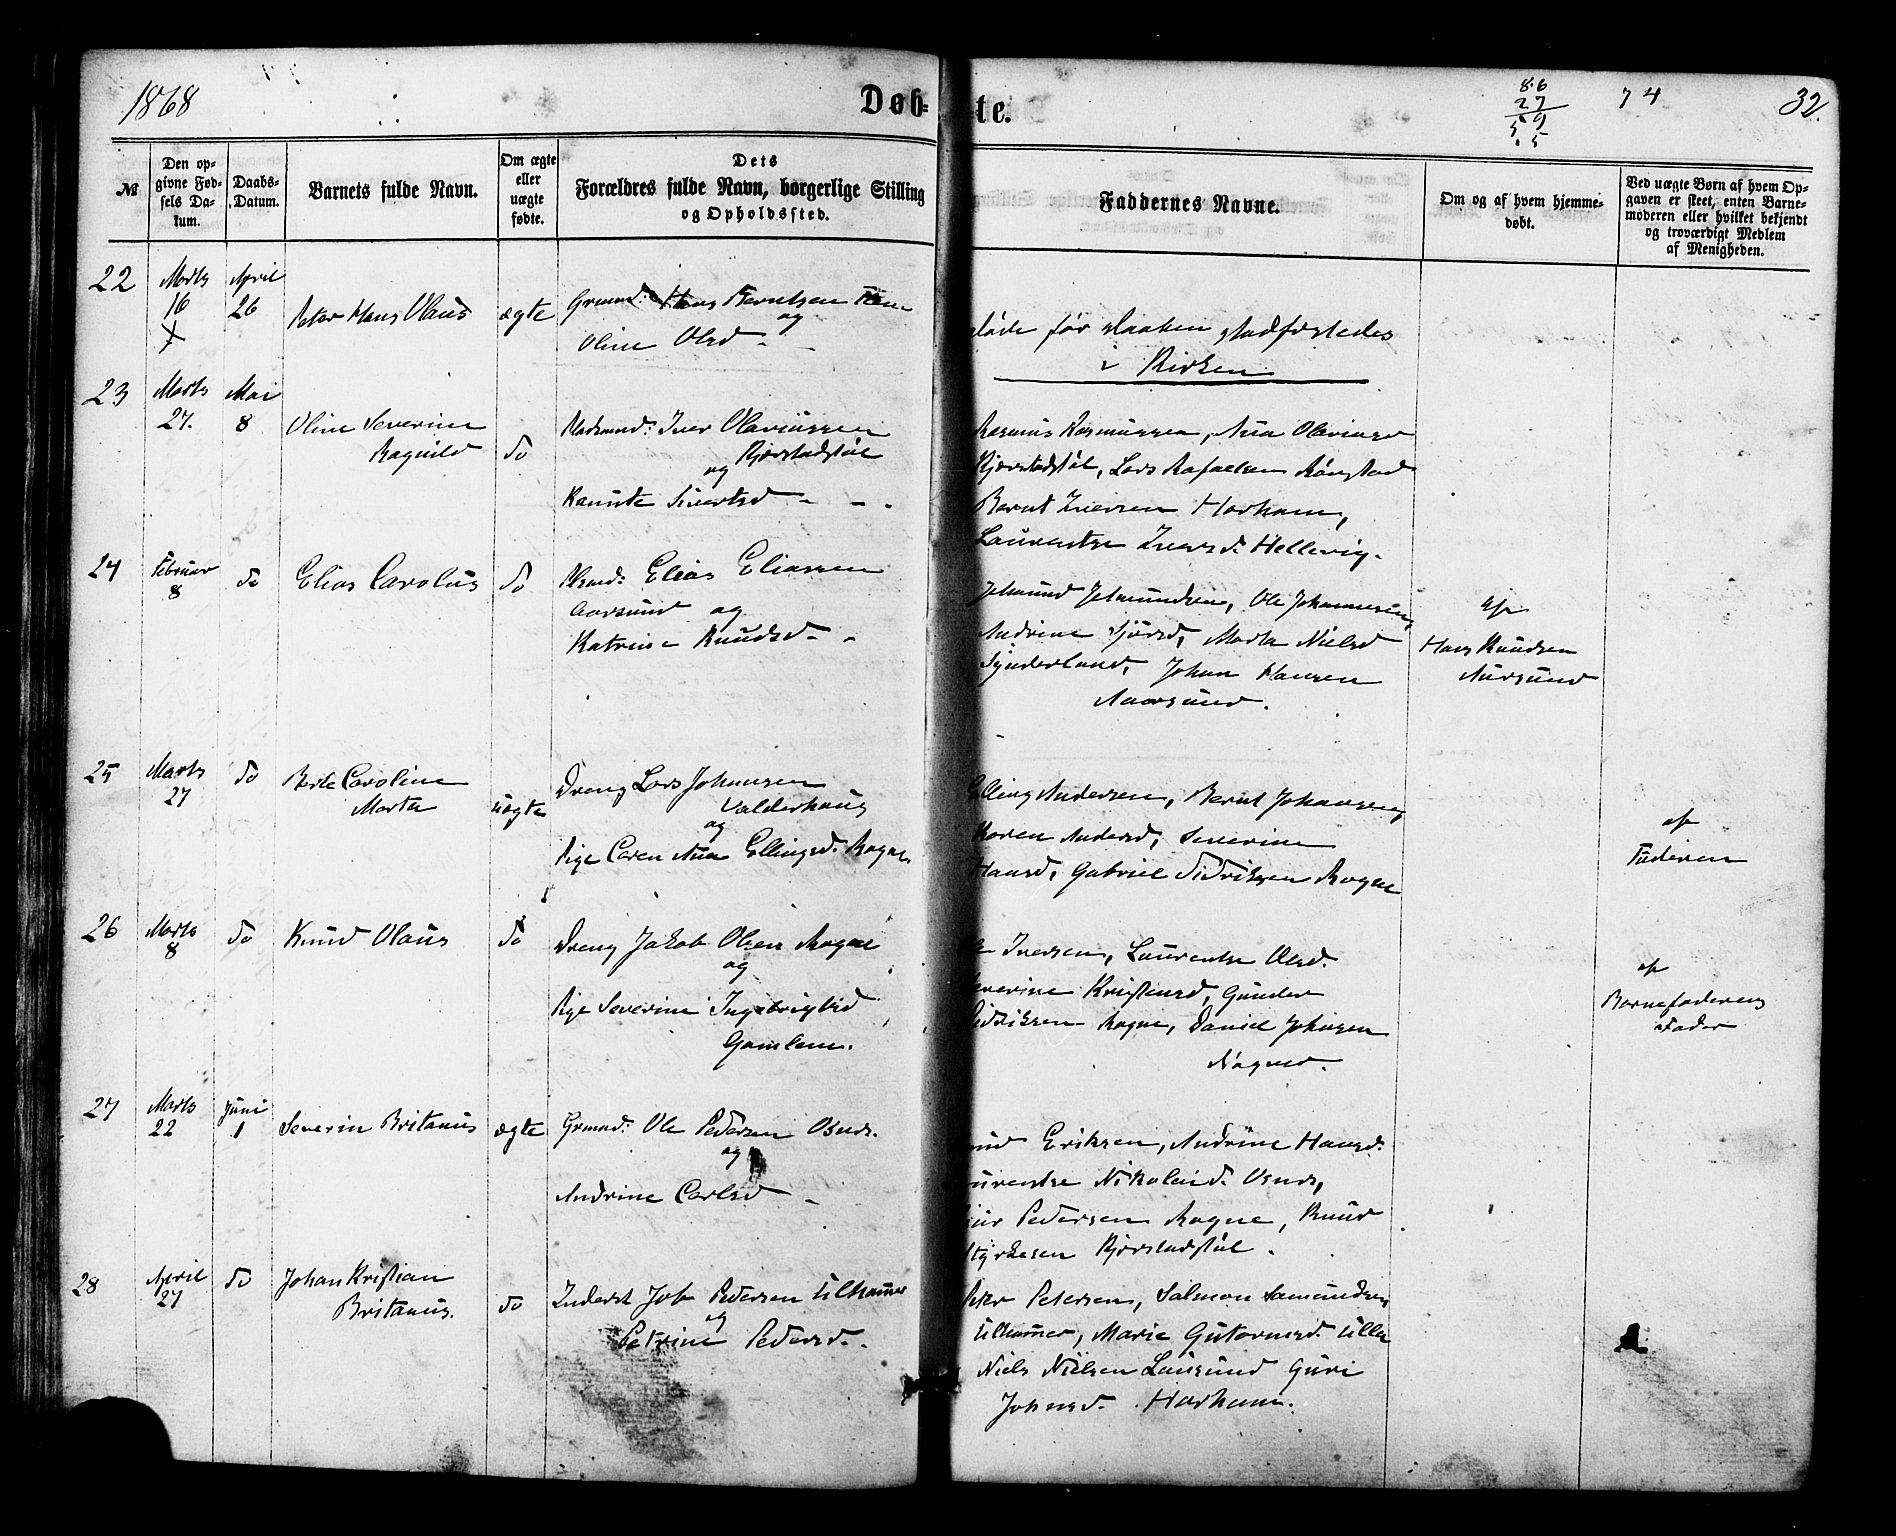 1868
Døb-
te.
86
27
59
5
74
32.
№
Den op-
givne Fød-
sels Da-
tum.
Daabs-
Datum.
Barnets fulde Navn.
Om ægte
eller
uægte
fødte.
Dets
Forældres fulde Navn, borgerlige Stilling
og Opholdssted.
Faddernes Navne.
Om og af hvem hjemme-
døbt.
Ved uægte Børn af hvem Op-
gaven er skeet, enten Barne-
moderen eller hvilket bekjendt
og troværdigt Medlem
af Menigheden.
22
Marts
16
April
26
Peter Hans Olaus
ægte
Grmnd: Hans Berntsen
og
Oline Olsd
døde før Daaben stadfæstedes
i Kirken
23
Marts
27.
Mai
8
Oline Severine
Ragnild
do
Pladsmnd: Iver Olaviussen
Kjerstadstøl
og
Sivertsd
Rasmus Rasmussen, Ana Olavius
Kjerstadstøl, Lars Rafaelsen Rønstad
Bernt Iversen Harham,
Laurentse Iversd. Hellevig.
24
Februar
8
do
Elias Carolus
do
Elias Eliassen
Aarsund og
Katrine Knudsd
Jetmund Jetmundsen, Ole Johannesen,
Andrine Sjursd, Marta Nielsd
Synderland, Johan Hansen
Aarsund.
af
Hans Knudsen
Aarsund
25
Marts
27
do
Berte Caroline
Marta
uægte
Dreng Lars Johansen
Valderhoug
og
Pige Caren Ana Ellingsd. Rogne
Elling Andersen, Bernt Johansen,
Karen Andersd, Severine
Hansd, Gabriel Didriksen Rogne
af
Faderen
26
Marts
8
do
Knud Olaus
do
Dreng Jakob Olsen Rogne
og
Pige Severine Ingebrigtsd
Gamlem.
Iversen, Laurentse Olsd.
Severine Kristensd, Gunder
Didriksen Rogne, Daniel Johnsen
Rogne.
af
Barnefaderens
Fader
27
Marts
22
Juni
1
Severin Britanus
ægte
Grmnd: Ole Pedersen Osnes.
og
Andrine Carlsd
Knud Eriksen, Andrine Hansd.
Laurentse Nikolaid. Osnes,
Pedersen Rogne, Knud
Styrkesen Kjerstadstøl.
28
April
27
do
Johan Kristian
Britanus.
do
Inderst Job Pedersen Ulhamer
og
Petrine Pedersd.
Peter Petersen, Salmon Samundsen
Ulhamer, Marie Gutormsd. Ulla
Niels Nielsen Lausund Guri
Johnsd. Harham.